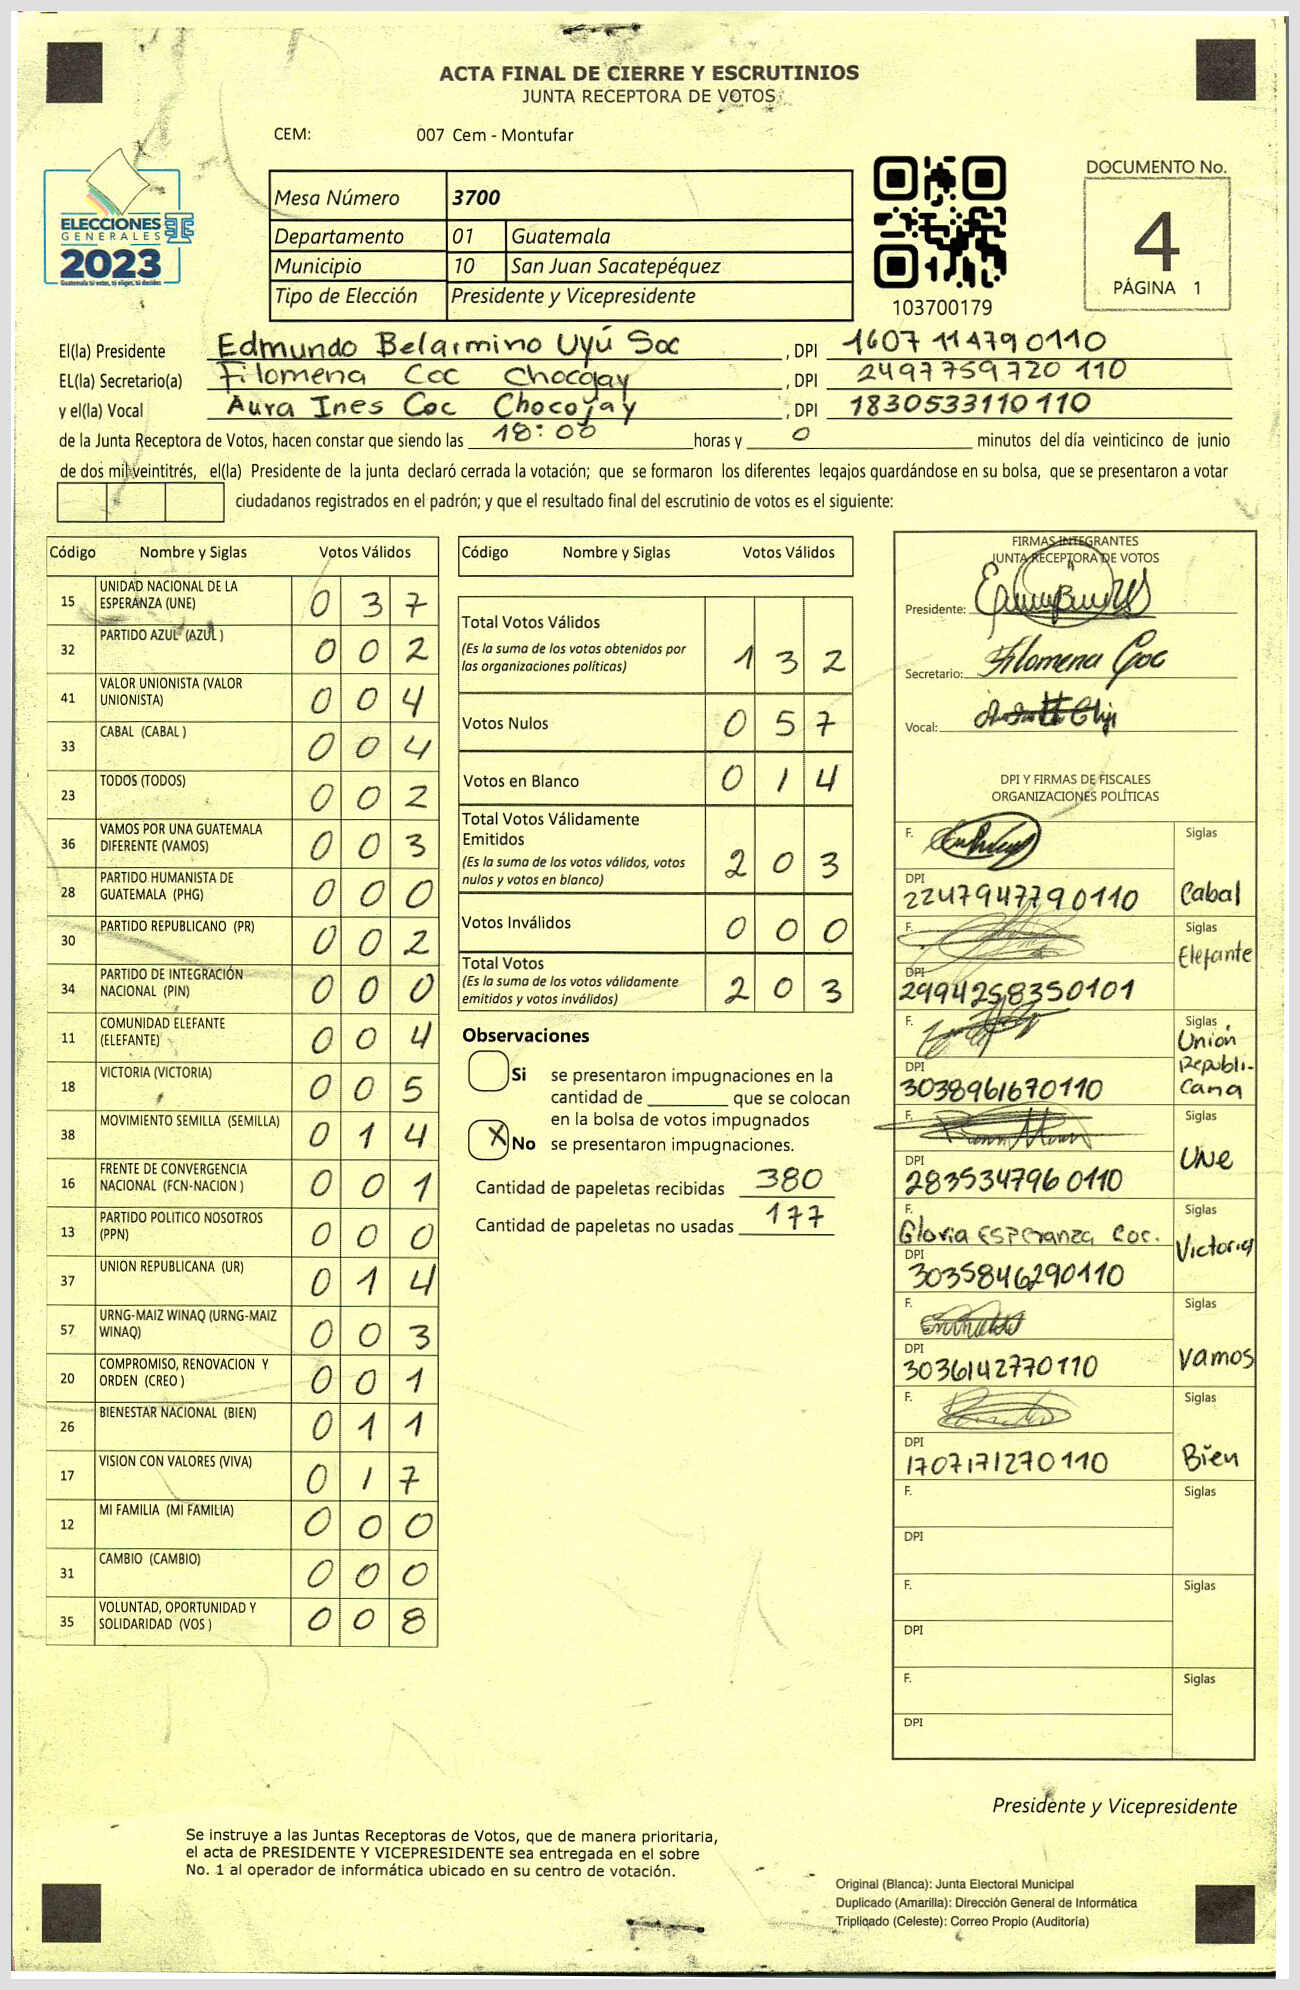 ACTA FINAL DE CIERRE Y ESCRUTINIOS
JUNTA RECEPTORA DE VOTOS
CEM: 007 Cem - Montufar
ELECCIONES
GENERALES
2023
Guatemala tú votas, tú eliges, tú decides
Mesa Número 3700
Departamento 01 Guatemala
Municipio 10 San Juan Sacatepéquez
Tipo de Elección Presidente y Vicepresidente
103700179
DOCUMENTO No.
4
PÁGINA 1
El(la) Presidente Edmundo Belarmino Uyú Soc , DPI 1607 11479 0110
EL(la) Secretario(a) Filomena Coc Chocojay , DPI 2497759720 110
y el(la) Vocal Aura Ines Coc Chocojay , DPI 1830533110110
de la Junta Receptora de Votos, hacen constar que siendo las 18:00 horas y 0 minutos del día veinticinco de junio
de dos mil veintitrés, el(la) Presidente de la junta declaró cerrada la votación; que se formaron los diferentes legajos guardándose en su bolsa, que se presentaron a votar
ciudadanos registrados en el padrón; y que el resultado final del escrutinio de votos es el siguiente:
Código Nombre y Siglas Votos Válidos
15 UNIDAD NACIONAL DE LA ESPERANZA (UNE) 0 3 7
32 PARTIDO AZUL (AZUL ) 0 0 2
41 VALOR UNIONISTA (VALOR UNIONISTA) 0 0 4
33 CABAL (CABAL ) 0 0 4
23 TODOS (TODOS) 0 0 2
36 VAMOS POR UNA GUATEMALA DIFERENTE (VAMOS) 0 0 3
28 PARTIDO HUMANISTA DE GUATEMALA (PHG) 0 0 0
30 PARTIDO REPUBLICANO (PR) 0 0 2
34 PARTIDO DE INTEGRACIÓN NACIONAL (PIN) 0 0 0
11 COMUNIDAD ELEFANTE (ELEFANTE) 0 0 4
18 VICTORIA (VICTORIA) 0 0 5
38 MOVIMIENTO SEMILLA (SEMILLA) 0 1 4
16 FRENTE DE CONVERGENCIA NACIONAL (FCN-NACION ) 0 0 1
13 PARTIDO POLITICO NOSOTROS (PPN) 0 0 0
37 UNION REPUBLICANA (UR) 0 1 4
57 URNG-MAIZ WINAQ (URNG-MAIZ WINAQ) 0 0 3
20 COMPROMISO, RENOVACION Y ORDEN (CREO ) 0 0 1
26 BIENESTAR NACIONAL (BIEN) 0 1 1
17 VISION CON VALORES (VIVA) 0 1 7
12 MI FAMILIA (MI FAMILIA) 0 0 0
31 CAMBIO (CAMBIO) 0 0 0
35 VOLUNTAD, OPORTUNIDAD Y SOLIDARIDAD (VOS ) 0 0 8
Código Nombre y Siglas Votos Válidos
Total Votos Válidos
(Es la suma de los votos obtenidos por
las organizaciones políticas) 1 3 2
Votos Nulos 0 5 7
Votos en Blanco 0 1 4
Total Votos Válidamente
Emitidos
(Es la suma de los votos válidos, votos
nulos y votos en blanco) 2 0 3
Votos Inválidos 0 0 0
Total Votos
(Es la suma de los votos válidamente
emitidos y votos inválidos) 2 0 3
Observaciones
Si se presentaron impugnaciones en la
cantidad de ________ que se colocan
en la bolsa de votos impugnados
X No se presentaron impugnaciones.
Cantidad de papeletas recibidas 380
Cantidad de papeletas no usadas 177
FIRMAS INTEGRANTES
JUNTA RECEPTORA DE VOTOS
Presidente:
Secretario: Filomena Coc
Vocal:
DPI Y FIRMAS DE FISCALES
ORGANIZACIONES POLÍTICAS
F. Siglas
DPI 2247947790110 Cabal
F. Siglas
DPI 2994258350101 Elefante
F. Siglas
DPI 3038961670110 Unión Republi-cana
F. Siglas
DPI 2835347960110 UNe
F. Gloria Esperanza Coc. Siglas
DPI 3035846290110 Victoria
F. Siglas
DPI 3036142770110 Vamos
F. Siglas
DPI 1707171270110 Bien
F. Siglas
DPI
F. Siglas
DPI
F. Siglas
DPI
Presidente y Vicepresidente
Se instruye a las Juntas Receptoras de Votos, que de manera prioritaria,
el acta de PRESIDENTE Y VICEPRESIDENTE sea entregada en el sobre
No. 1 al operador de informática ubicado en su centro de votación.
Original (Blanca): Junta Electoral Municipal
Duplicado (Amarilla): Dirección General de Informática
Triplicado (Celeste): Correo Propio (Auditoría)